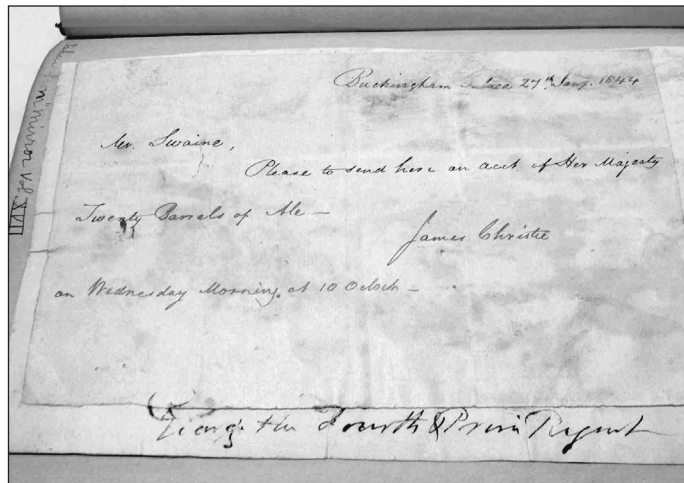 Buckingham Palace 27th Jany. 1844
Mr. Swaine,
Please to send here on acct of Her Majesty
Twenty Barrels of Ale —
James Christie
on Wednesday Morning at 10 Oclock —
George the Fourth & Prince Regent
Mirror Vol
XVII